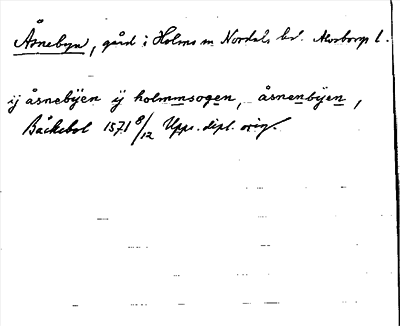 Åsnebyn, gård i Holms sn Nordals hd. Älvsborgs l.
ij åsnebijen ij holmmsogen, åsnenbijen,
Bäckebol 1571 8/12 Upps. dipl. orig.